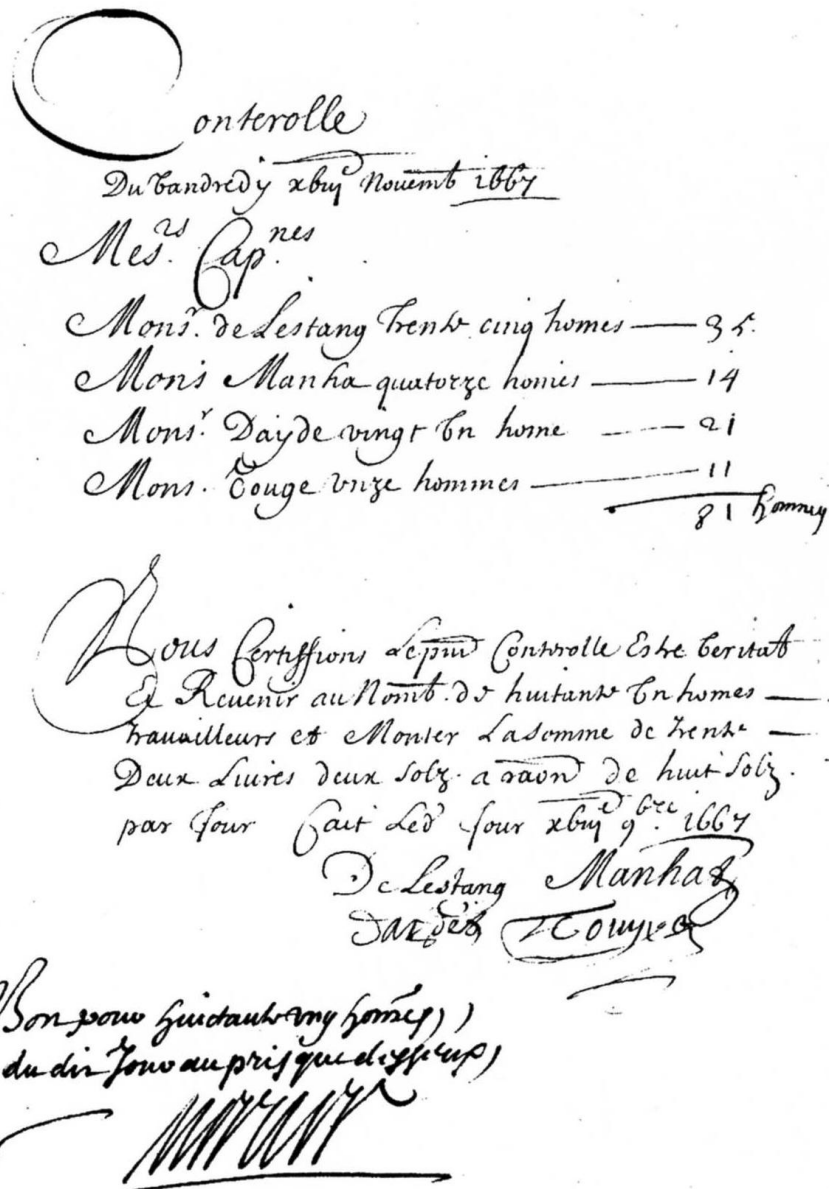 Conterolle
Du Vandredy xviij<sup>e</sup> Nouemb 1667
Mes<sup>rs</sup>. Cap<sup>nes</sup>.
Mons<sup>r</sup>. de Lestang Trente cinq homes — 35.
Mons Manha quatorze homes — 14
Mons<sup>r</sup>. Dayde vingt Vn home — 21
Mons. Touge vnze hommes — 11
81 hommes
Nous Certiffions Le pnt Conterolle Estre Veritab
Et Reuenir au Nomb. de huitante Vn homes —
trauailleurs et Monter La somme de trente —
Deux Liures deux solz. a raōn de huit solz.
par Jour fait Led Jour xviij<sup>e</sup> 9<sup>bre</sup> 1667
De Lestang Manhat
Touge
Bon pour huictante vng homes,
du dit Jour au pris que dessus,